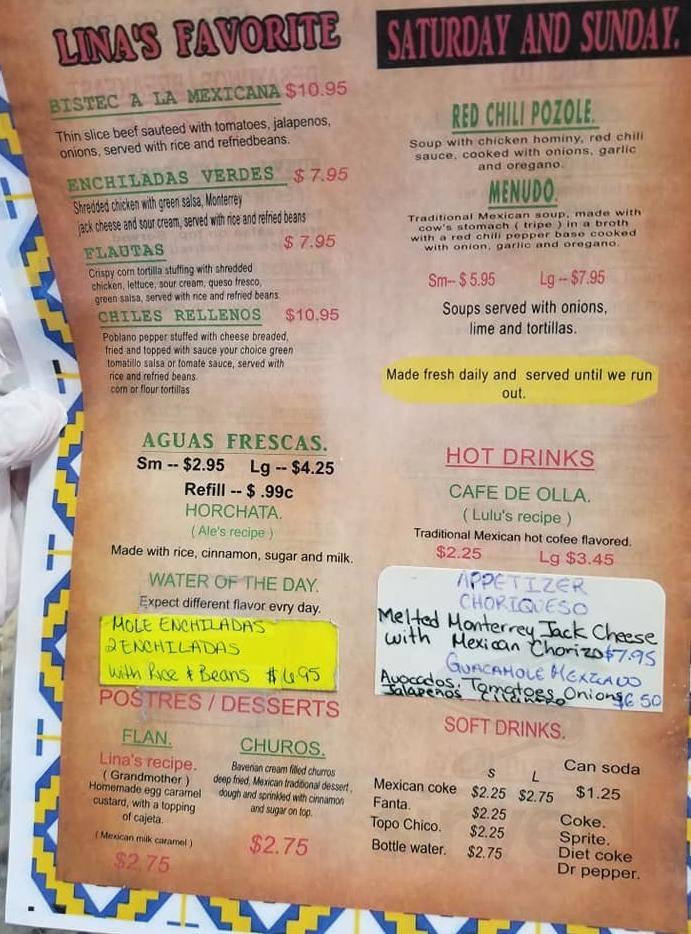 LINA'S FAVORITE
BISTEC A LA MEXICANA $10.95
Thin slice beef sauteed with tomatoes, jalapenos,
onions, served with rice and refriedbeans.
ENCHILADAS VERDES $ 7.95
Shredded chicken with green salsa, Monterrey
jack cheese and sour cream, served with rice and refried beans
FLAUTAS $ 7.95
Crispy corn tortilla stuffing with shredded
chicken, lettuce, sour cream, queso fresco,
green salsa, served with rice and refried beans.
CHILES RELLENOS $10.95
Poblano pepper stuffed with cheese breaded,
fried and topped with sauce your choice green
tomatillo salsa or tomate sauce, served with
rice and refried beans.
corn or flour tortillas
AGUAS FRESCAS.
Sm -- $2.95 Lg -- $4.25
Refill -- $ .99c
HORCHATA.
( Ale's recipe )
Made with rice, cinnamon, sugar and milk.
WATER OF THE DAY.
Expect different flavor evry day.
MOLE ENCHILADAS
2 ENCHILADAS
With Rice & Beans $6.95
POSTRES / DESSERTS
FLAN.
Lina's recipe.
( Grandmother )
Homemade egg caramel
custard, with a topping
of cajeta.
( Mexican milk caramel )
$2.75
CHUROS.
Baverian cream filled churros
deep fried, Mexican traditional dessert,
dough and sprinkled with cinnamon
and sugar on top.
$2.75
SATURDAY AND SUNDAY.
RED CHILI POZOLE.
Soup with chicken hominy, red chili
sauce, cooked with onions, garlic
and oregano.
MENUDO.
Traditional Mexican soup, made with
cow's stomach ( tripe ) in a broth
with a red chili pepper base cooked
with onion, garlic and oregano.
Sm-- $ 5.95 Lg -- $7.95
Soups served with onions,
lime and tortillas.
Made fresh daily and served until we run
out.
HOT DRINKS
CAFE DE OLLA.
( Lulu's recipe )
Traditional Mexican hot cofee flavored.
$2.25 Lg $3.45
APPETIZER
CHORIQUESO
Melted Monterrey Jack Cheese
with Mexican Chorizo $7.95
GUACAMOLE MEXICANO
Avocados, Tomatoes, Onions $6.50
Jalapeños
SOFT DRINKS.
S L Can soda
Mexican coke $2.25 $2.75 $1.25
Fanta. $2.25 Coke.
Topo Chico. $2.25 Sprite.
Bottle water. $2.75 Diet coke
Dr pepper.